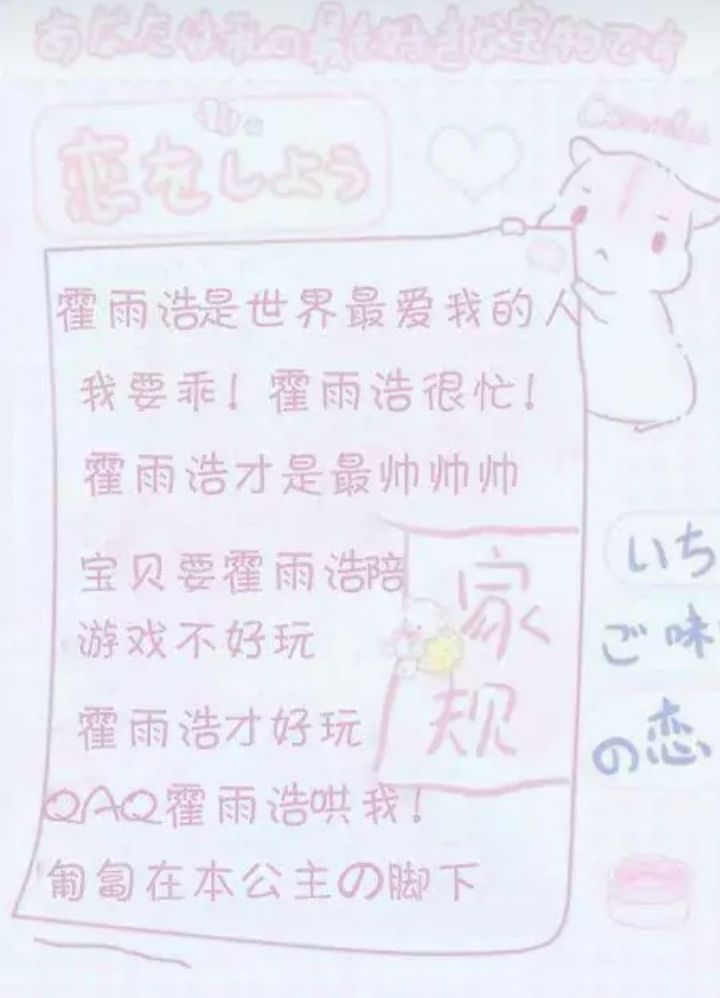 あなたは私の最も好きな宝物です
恋をしよう
霍雨浩是世界最爱我的人
我要乖！霍雨浩很忙！
霍雨浩才是最帅帅帅
宝贝要霍雨浩陪
游戏不好玩
霍雨浩才好玩
QAQ霍雨浩哄我！
匍匐在本公主の脚下
家规
いち
ご味
の恋